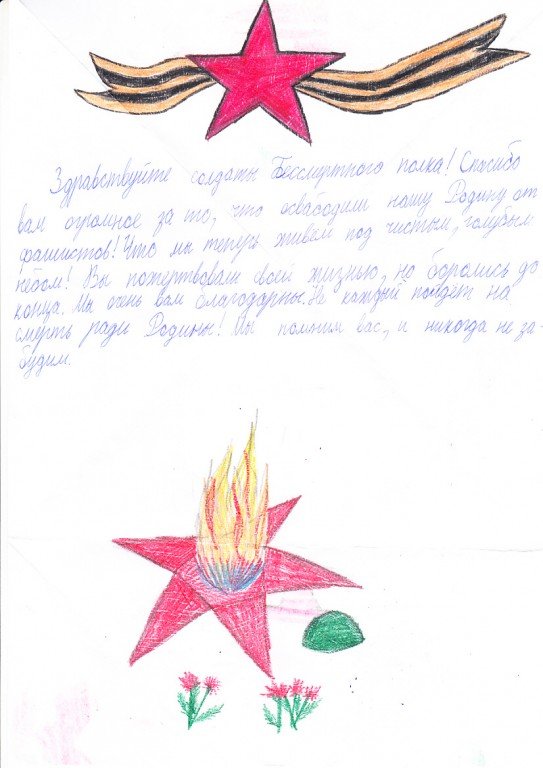 Здравствуйте солдаты Бессмертного полка! Спасибо
вам огромное за то, что освабодили нашу Родину от
фашистов! Что мы теперь живём под чистым, голубым
небом! Вы пожертвовали своей жизнью, но боролись до
конца. Мы очень вам благодарны. Не каждый пойдет на
смерть ради Родины! Мы помним вас, и никогда не за-
будим.